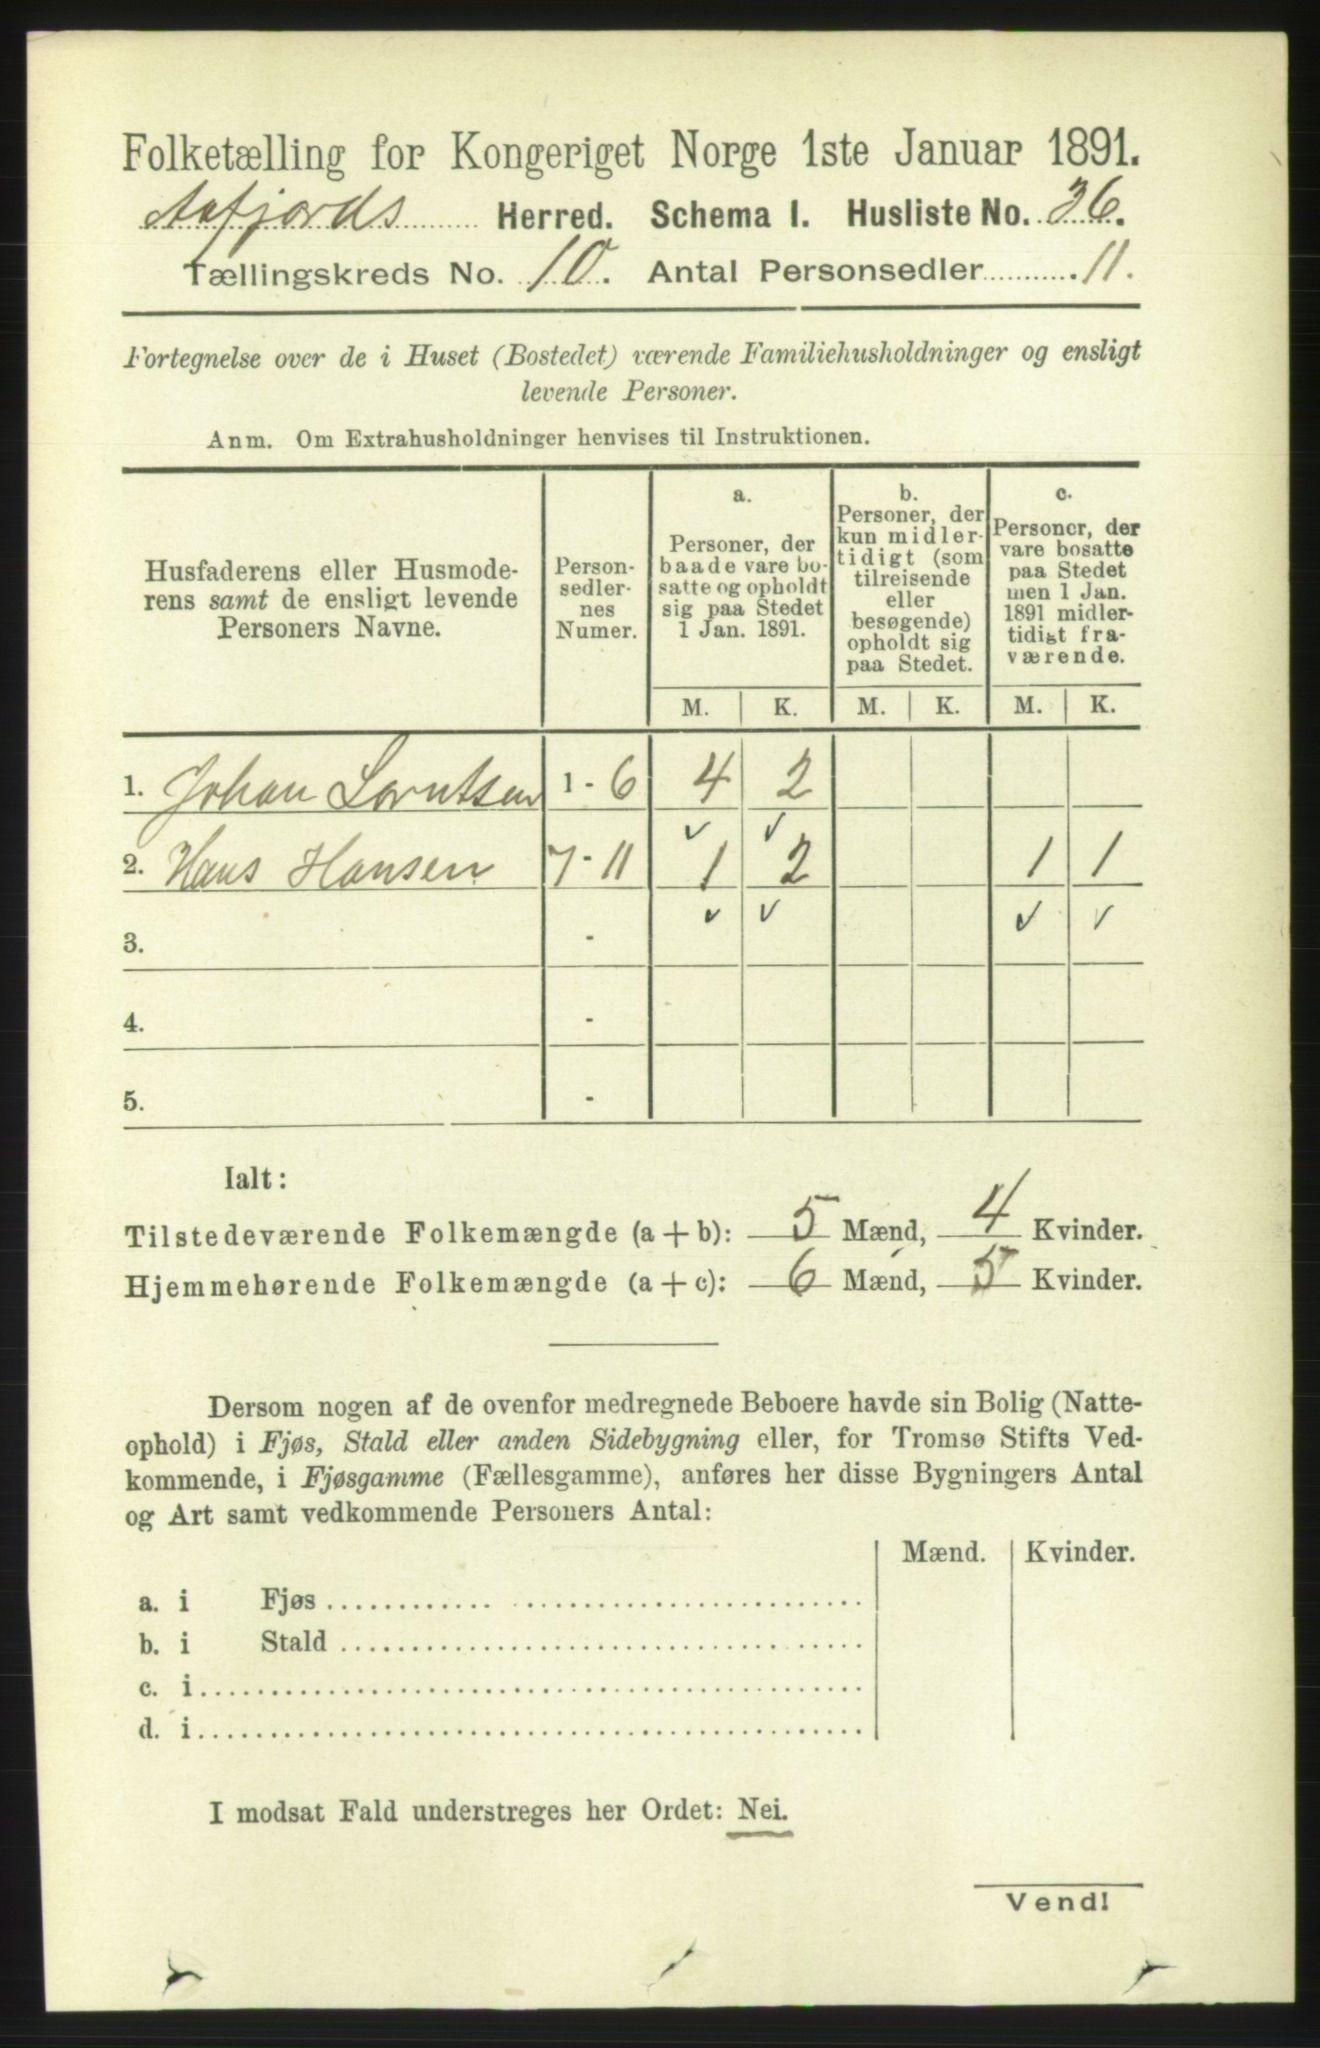 Folketælling for Kongeriget Norge 1ste Januar 1891.
Aafjords Herred. Schema I. Husliste No. 36.
Tællingskreds No. 10. Antal Personsedler 11.
Fortegnelse over de i Huset (Bostedet) værende Familiehusholdninger og ensligt
levende Personer.
Anm. Om Extrahusholdninger henvises til Instruktionen.
Husfaderens eller Husmode-
rens samt de ensligt levende
Personers Navne.
Person-
sedler-
nes
Numer.
a.
Personer, der
baade vare bo-
satte og opholdt
sig paa Stedet
1 Jan. 1891.
b.
Personer, der
kun midler-
tidigt (som
tilreisende
eller
besøgende)
opholdt sig
paa Stedet.
c.
Personer, der
vare bosatte
paa Stedet
men 1 Jan.
1891 midler-
tidigt fra-
værende.
M. K. M. K. M. K.
1. Johan Lorntsen 1 - 6 4 2
✓ ✓
2. Hans Hansen 7 - 11 1 2 1 1
✓ ✓ ✓ ✓
3. -
4. -
5. -
Ialt:
Tilstedeværende Folkemængde (a + b): 5 Mænd, 4 Kvinder.
Hjemmehørende Folkemængde (a + c): 6 Mænd, 5 Kvinder.
Dersom nogen af de ovenfor medregnede Beboere havde sin Bolig (Natte-
ophold) i Fjøs, Stald eller anden Sidebygning eller, for Tromsø Stifts Ved-
kommende, i Fjøsgamme (Fællesgamme), anføres her disse Bygningers Antal
og Art samt vedkommende Personers Antal:
Mænd. Kvinder.
a. i Fjøs
b. i Stald
c. i
d. i
I modsat Fald understreges her Ordet: Nei.
Vend!